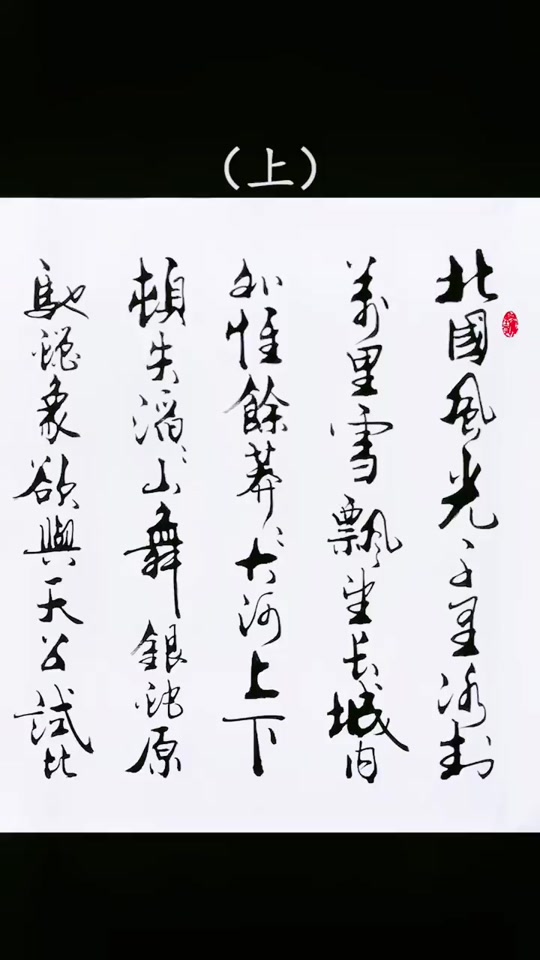 (上)
北國風光千里冰封
萬里雪飄望长城内
外惟餘莽〻大河上下
頓失滔〻山舞銀蛇原
馳蠟象欲與天公試比